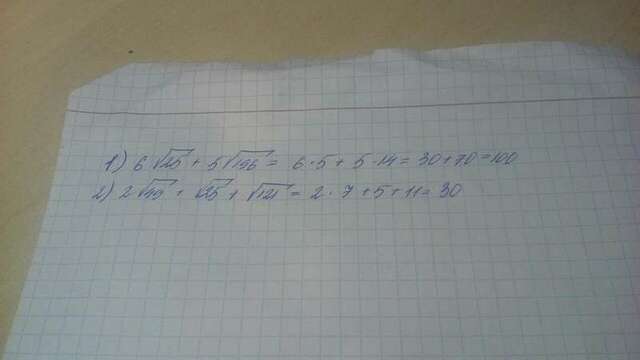 1) 6√25 + 5√196 = 6·5 + 5·14 = 30+70=100
2) 2√49 + √25 + √121 = 2·7+5+11=30